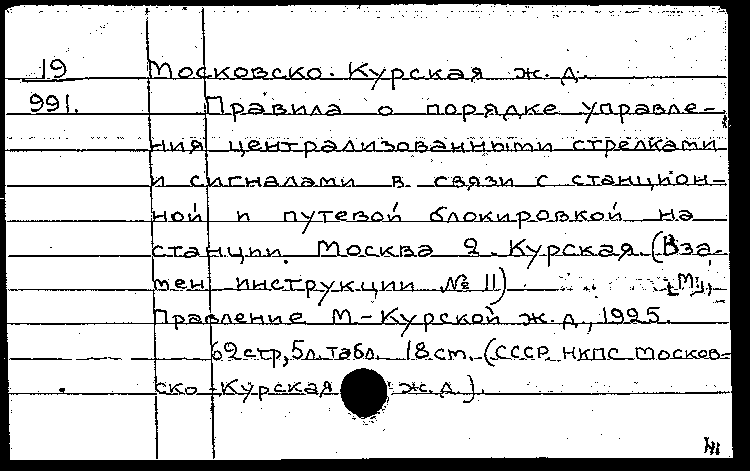 19 Московско-Курская ж.д.
991. Правила о порядке управле-
ния централизованными стрелками
и сигналами в связи с станцион-
ной и путевой блокировкой на
станции Москва 2-Курская. (Вза-
мен инструкции № 11) [М],
Правление М-Курской ж.д., 1925.
62 стр, 5 л. табл. 18 ст. (СССР НКПС Москов-
ско-Курская ж.д.).